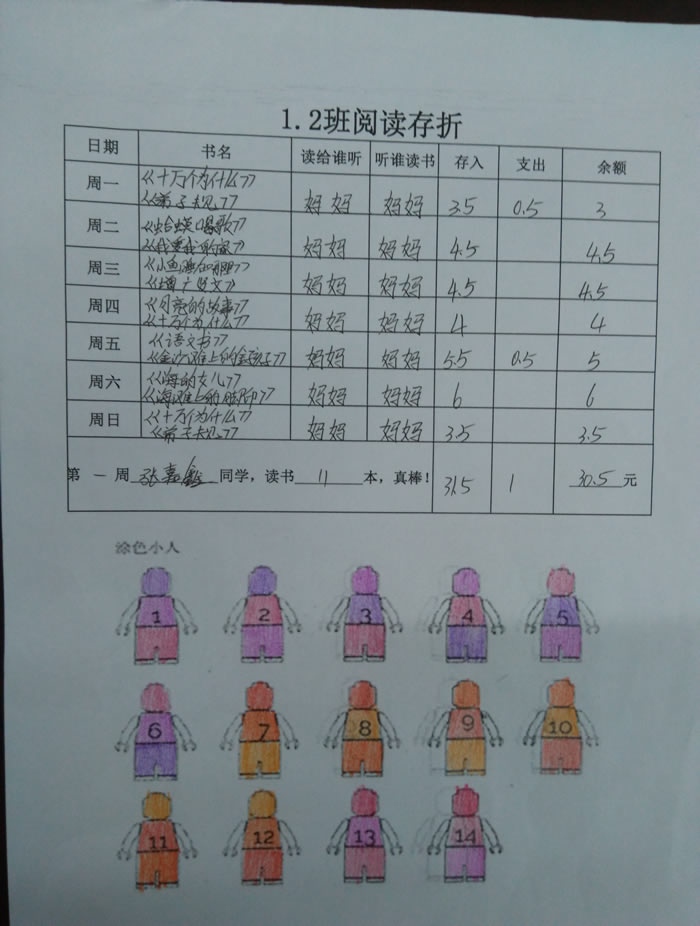 1.2班阅读存折
日期 书名 读给谁听 听谁读书 存入 支出 余额
周一 《十万个为什么》
《弟子规》 妈妈 妈妈 3.5 0.5 3
周二 《蛤蟆唱歌》
《我要我的家》 妈妈 妈妈 4.5 4.5
周三 《小鱼
《增广贤文》 妈妈 妈妈 4.5 4.5
周四 《月亮的故事》
《十万个为什么》 妈妈 妈妈 4 4
周五 《语文书》
《金沙滩上的金孩子》 妈妈 妈妈 5.5 0.5 5
周六 《海的女儿》
《海滩上的脚印》 妈妈 妈妈 6 6
周日 《十万个为什么》
《弟子规》 妈妈 妈妈 3.5 3.5
第 一 周 张嘉 同学，读书 11 本，真棒！ 31.5 1 30.5 元
涂色小人
1 2 3 4 5
6 7 8 9 10
11 12 13 14